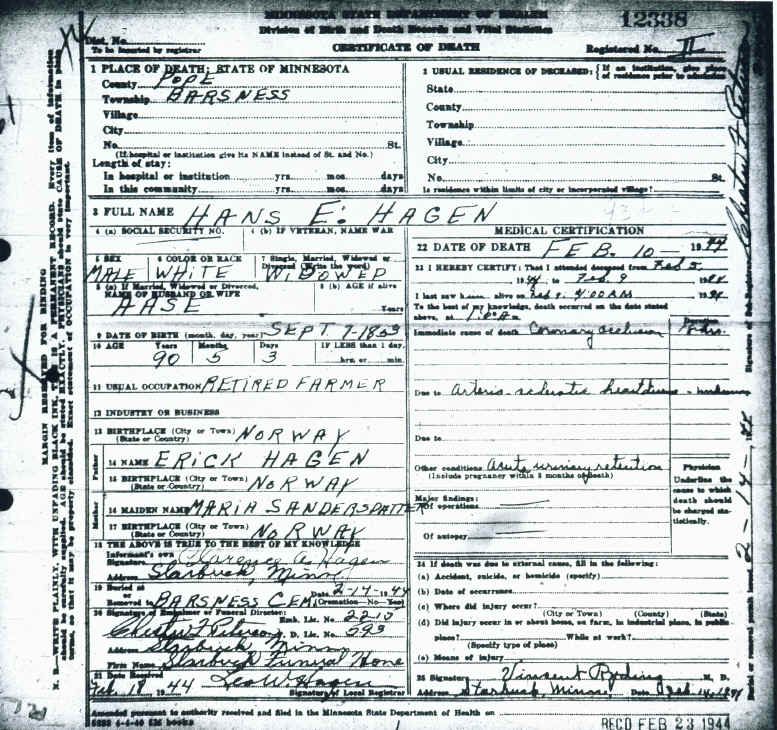 MINNESOTA STATE DEPARTMENT OF HEALTH
Division of Birth and Death Records and Vital Statistics
12338
Dist. No.
To be inserted by registrar
CERTIFICATE OF DEATH
Registered No. II
1 PLACE OF DEATH: STATE OF MINNESOTA
County POPE
Township BARSNESS
Village
City
No. St.
(If hospital or institution give its NAME instead of St. and No.)
Length of stay:
In hospital or institution yrs. mos. days
In this community yrs. mos. days
2 USUAL RESIDENCE OF DECEASED: {If an institution, give place of residence prior to admission
State
County
Township
Village
City
No. St.
Is residence within limits of city or incorporated village?
3 FULL NAME HANS E. HAGEN
4 (a) SOCIAL SECURITY NO. 4 (b) IF VETERAN, NAME WAR
5 SEX 6 COLOR OR RACE 7 Single, Married, Widowed or Divorced (Write the word)
MALE WHITE WIDOWED
8 (a) If Married, Widowed or Divorced, 8 (b) AGE if alive
NAME OF HUSBAND OR WIFE
AASE Years
9 DATE OF BIRTH (month, day, year) SEPT 7-1853
10 AGE Years Months Days IF LESS than 1 day,
90 5 3 hrs. or min.
11 USUAL OCCUPATION RETIRED FARMER
12 INDUSTRY OR BUSINESS
13 BIRTHPLACE (City or Town) NORWAY
(State or Country)
Father
14 NAME ERICK HAGEN
15 BIRTHPLACE (City or Town) NORWAY
(State or Country)
Mother
16 MAIDEN NAME MARIA SANDERSDATTER
17 BIRTHPLACE (City or Town) NORWAY
(State or Country)
18 THE ABOVE IS TRUE TO THE BEST OF MY KNOWLEDGE
Informant's own Signature Clarence A. Hagen
Address Starbuck, Minn.
19 Buried at or Removed to BARSNESS CEM. Date 2-14-1944
(Cremation—No—Yes)
20 Signature of Embalmer or Funeral Director: Emb. Lic. No. 2215
Chester F. Peterson F. D. Lic. No. 593
Address Starbuck Minn
Firm Name Starbuck Funeral Home
21 Date Received
Feb 18 1944 Leo W. Hagen
Signature of Local Registrar
MEDICAL CERTIFICATION
22 DATE OF DEATH FEB. 10 — 1944
23 I HEREBY CERTIFY: That I attended deceased from Feb 5
1944, to Feb. 9 1944
I last saw h alive on Feb 9, 4:00 AM 1944
To the best of my knowledge, death occurred on the date stated
above, at
Duration
Immediate cause of death Coronary occlusion
Due to Arterio-sclerotic heart disease - unknown
Due to
Other conditions Acute urinary retention
(Include pregnancy within 3 months of death)
Major findings:
Of operations
Of autopsy
Physician
Underline the cause to which death should be charged statistically.
24 If death was due to external cause, fill in the following:
(a) Accident, suicide, or homicide (specify)
(b) Date of occurrence
(c) Where did injury occur?
(City or Town) (County) (State)
(d) Did injury occur in or about home, on farm, in industrial place, in public
place? While at work?
(Specify type of place)
(e) Means of injury
25 Signature Vincent Ryding M. D.
Address Starbuck, Minn. Date Feb. 14, 1944
Amended pursuant to authority received and filed in the Minnesota State Department of Health on
REC'D FEB 23 1944
MARGIN RESERVED FOR BINDING
N. B.—WRITE PLAINLY, WITH UNFADING BLACK INK, THIS IS A PERMANENT RECORD. Every item of information
should be carefully supplied. AGE should be stated EXACTLY. PHYSICIANS should state CAUSE OF DEATH in plain
terms, so that it may be properly classified. Exact statement of OCCUPATION is very important.
Chester F. Peterson
2-14-44